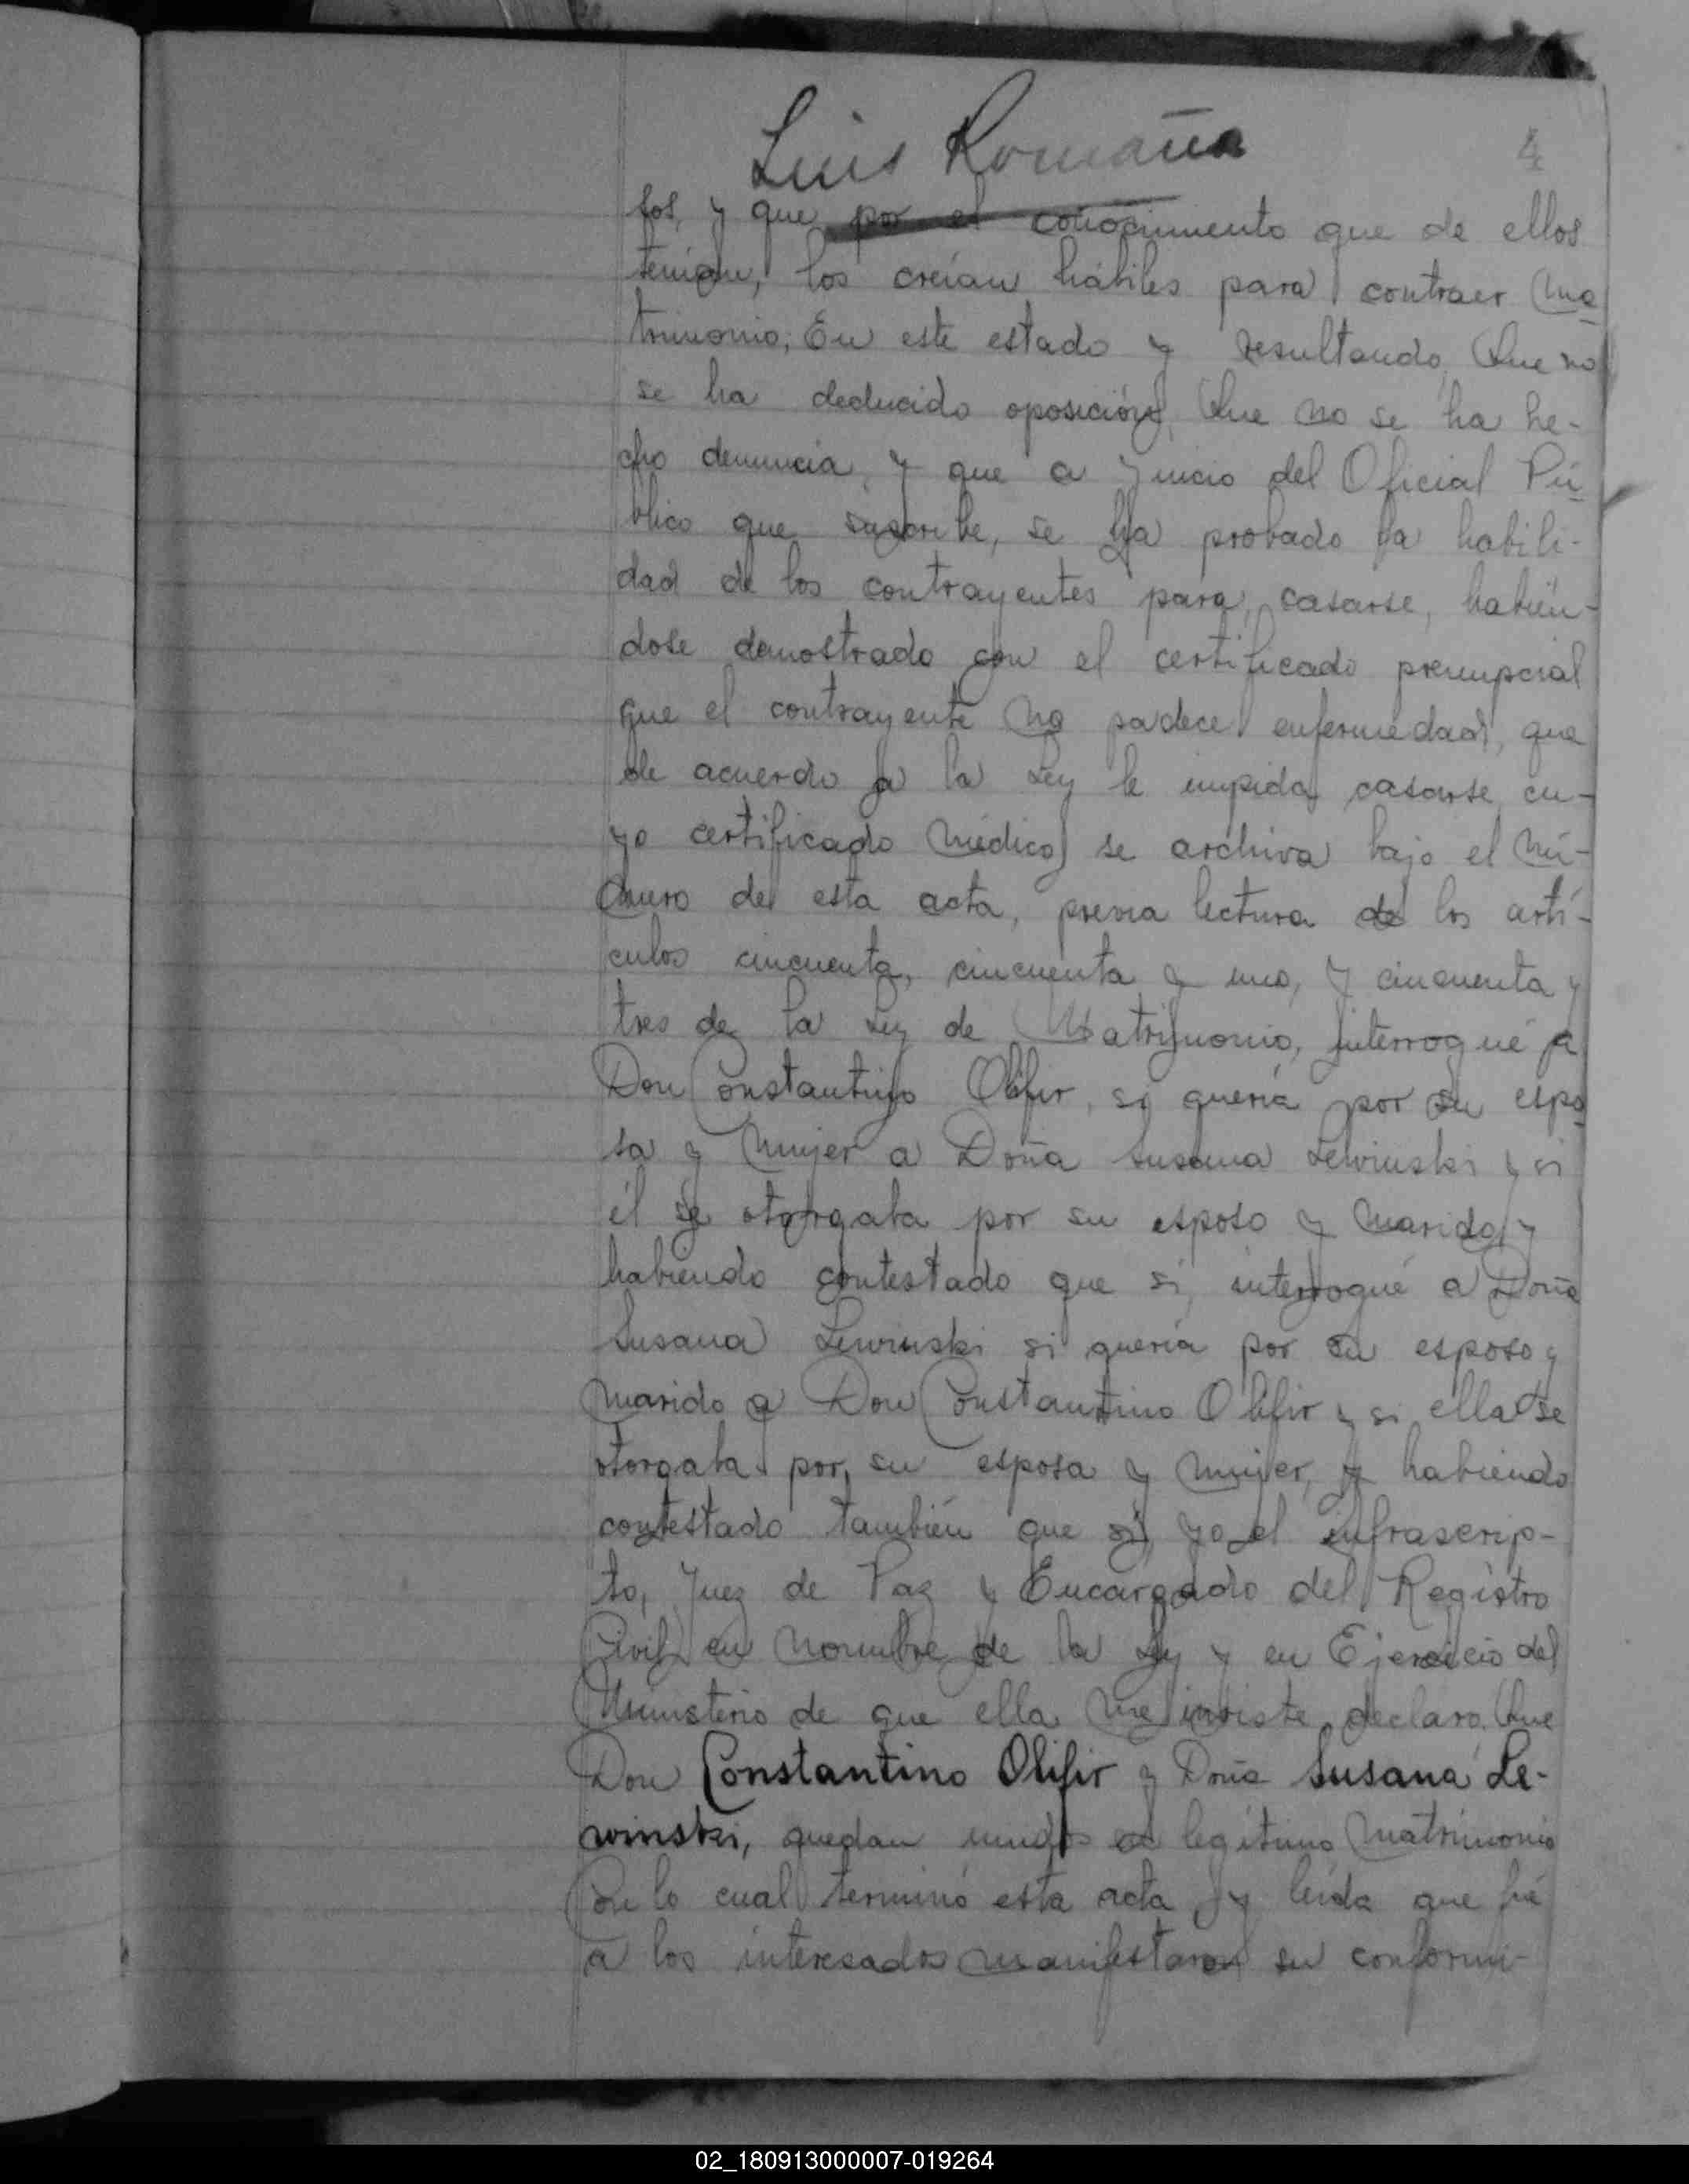 Luis Romaña
4
tos, y que por el conocimiento que de ellos
tenían, los creían hábiles para contraer ma
trimonio; En este estado y resultando, Que no
se ha deducido oposición, Que no se ha he-
cho denuncia, y que a juicio del Oficial Pú
blico que suscribe, se ha probado la habili-
dad de los contrayentes para casarse, habién-
dose demostrado con el certificado prenupcial
que el contrayente no padece enfermedad, que
de acuerdo a la Ley le impida casarse, cu-
yo certificado médico se archiva bajo el nú-
mero de esta acta, previa lectura de los artí-
culos cincuenta, cincuenta y uno, y cincuenta y
tres de la Ley de Matrimonio, interrogué a
Don Constantino Olifir, si quería por su espo
sa y mujer a Doña Susana Lewinski y si
él se otorgaba por su esposo y marido, y
habiendo contestado que si, interrogué a Doña
Susana Lewinski si quería por su esposo y
marido a Don Constantino Olifir y si ella se
otorgaba por su esposa y mujer, y habiendo
contestado también que si, yo el infrascrip-
to, Juez de Paz y Encargado del Registro
Civil, en nombre de la Ley y en Ejercicio del
Ministerio de que ella me inviste, declaro, Que
Don Constantino Olifir y Doña Susana Le-
winski, quedan unidos en legítimo matrimonio
Con lo cual terminó esta acta, y leída que fué
a los interesados manifestaron su conformi-
02_180913000007-019264